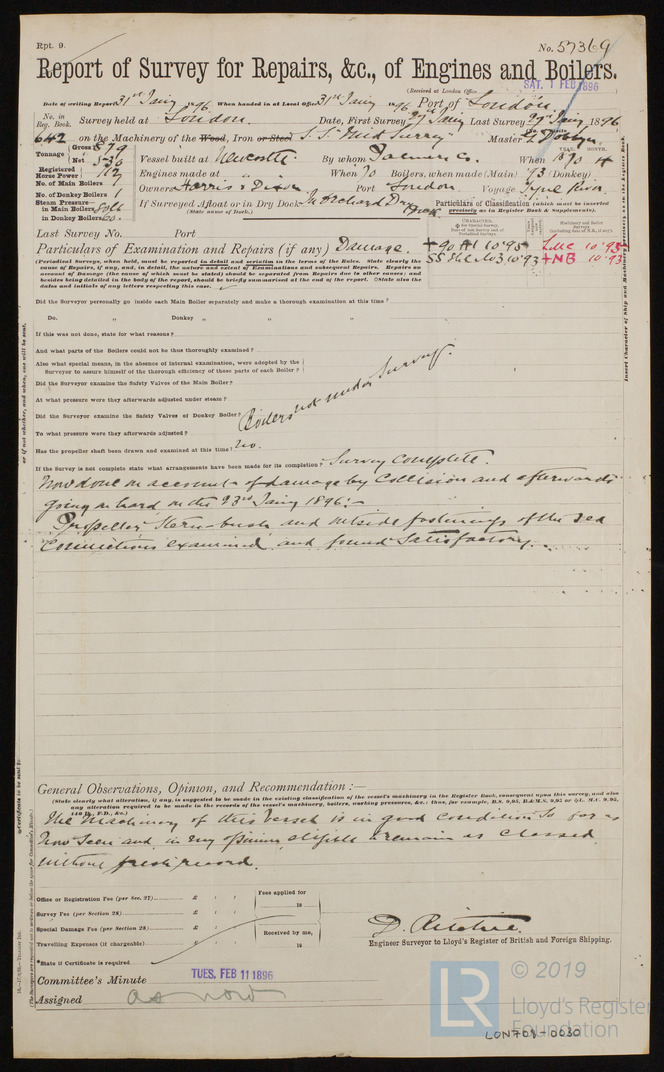 Rpt. 9.
No. 57369
Report of Survey for Repairs, &c., of Engines and Boilers.
(Received at London Office
SAT. 1 FEB 1896
Date of writing Report 31st Jany 1896 When handed in at Local Office 31st Jany 1896 Port of London.
No. in Reg. Book. Survey held at London. Date, First Survey 27th Jany Last Survey 29th Jany 1896
642 on the Machinery of the Wood, Iron or Steel S.S. "Mid Surrey" Master
Tonnage Gross 879
Net 530
Vessel built at Newcastle. By whom Palmers Co. When 1870 4
YEAR. MONTH.
Registered Horse Power
No. of Main Boilers
No. of Donkey Boilers 1
Steam Pressure—
in Main Boilers
in Donkey Boilers
Engines made at " " When 70 Boilers, when made (Main) 93 (Donkey)
Owners Harris & Dixon Port London. Voyage Tyne River
If Surveyed Afloat or in Dry Dock In Orchard Dry Dock
(State name of Dock.)
Particulars of Classification (which must be inserted
precisely as in Register Book & Supplements).
Last Survey No. Port
Particulars of Examination and Repairs (if any) Damage.
+90 A1 10·95 LMC 10·93
SS No3 10·93 +NB 10·93
(Periodical Surveys, when held, must be reported in detail and seriatim in the terms of the Rules. State clearly the
cause of Repairs, if any, and, in detail, the nature and extent of Examinations and subsequent Repairs. Repairs on
account of Damage (the cause of which must be stated) should be separated from Repairs due to other causes; and
besides being detailed in the body of the report, should be briefly summarised at the end of the report. State also the
dates and initials of any letters respecting this case.
Did the Surveyor personally go inside each Main Boiler separately and make a thorough examination at this time?
Do. " Donkey " " "
If this was not done, state for what reasons?
And what parts of the Boilers could not be thoroughly examined?
Also what special means, in the absence of internal examination, were adopted by the
Surveyor to assure himself of the thorough efficiency of those parts of each Boiler?
Did the Surveyor examine the Safety Valves of the Main Boiler?
At what pressure were they afterwards adjusted under steam?
Did the Surveyor examine the Safety Valves of Donkey Boiler?
Boilers not under Survey.
To what pressure were they afterwards adjusted?
Has the propeller shaft been drawn and examined at this time? No.
If the Survey is not complete state what arrangements have been made for its completion? Survey Complete.
Now done on account of damage by Collision and afterwards
going on board on the 23rd Jany 1896:-
Propeller Stern-bush and outside fastenings of the sea
Connections examined and found Satisfactory.
General Observations, Opinion, and Recommendation:—
(State clearly what alteration, if any, is suggested to be made in the existing classification of the vessel's machinery in the Register Book, consequent upon this survey, and also
any alteration required to be made in the records of the vessel's machinery, boilers, working pressures, &c.: thus, for example, B.S. 9,95, B.&M.S. 9,95 or L.M.C. 9,95,
140 lb., F.D., &c.)
The Machinery of this vessel is in good Condition so far as
Now Seen and in my opinion eligible to remain as Classed
without fresh record.
Office or Registration Fee (per Sec. 27) £ : :
Fees applied for
Survey Fee (per Section 28) £ : :
18
Special Damage Fee (per Section 28) £ : :
Received by me,
Travelling Expenses (if chargeable) £ : :
18
D. Ritchie.
Engineer Surveyor to Lloyd's Register of British and Foreign Shipping.
*State if Certificate is required
Committee's Minute TUES. FEB 11 1896
Assigned as now
LR © 2019
Lloyd's Register
Foundation
LON708-0030